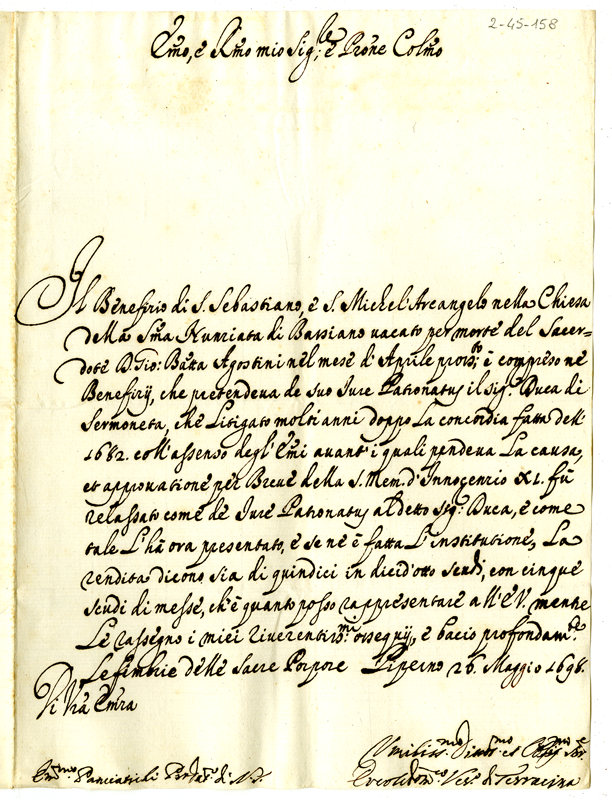 2-45-158
Emo, è Rmo mio Sig:re è Prone Colmo
Il Benefizio di S. Sebastiano, è S. Michel'Arcangelo nella Chiesa
della Sma Nunziata di Bassiano uacato per morte del Sacer=
dote D. Gio: Batta Agostini nel mese d'Aprile pross:to è compreso nè
Benefizij, che pretendeua de suo Jure Patronatus il Sig:r Duca di
Sermoneta, chè Litigato molti anni doppo La concordia fatta dell'
1682. coll'assenso degl'Emi auant'i quali pendeua La causa,
et approuatione per Breue della S. Mem. d'Innocenzio XI. fù
relassato come de Jure Patronatus al detto Sig:r Duca, è come
tale L'hà ora presentato, è se nè è fatta L'institutione, La
rendita dicono sia di quindici in dieci d'otto scudi, con cinque
scudi di messe, ch'è quanto posso rappresentare a ll'E.V. mentre
Le rassegno i miei riuerentiss:mi ossequij, è bacio profondam:te
Le fimbrie delle Sacre Porpore Piperno 26. Maggio 1698.
Di Vra Emza
Humiliss:mo Diuot:mo et Oblig:mo Ser:e
Em:mo Panciatichi Perdat:o di N.S.
Vesc:o di Terracina